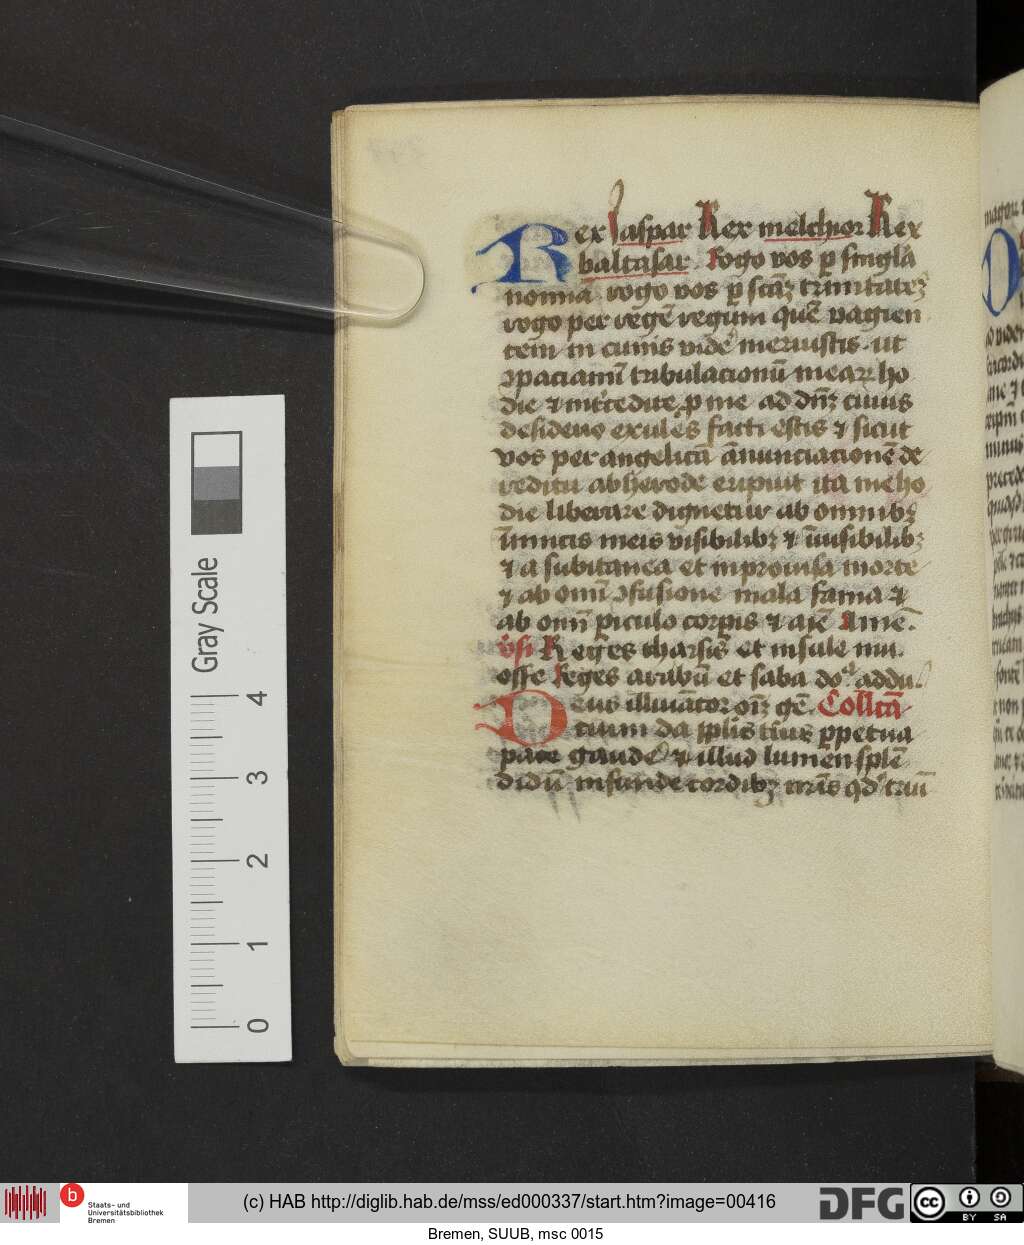 Rex Iaspar Rex melchior Rex
baltasar rogo vos p singla
nomia rogo vos p scāȝ trinitateȝ
rogo per regē regum quē vagien
tem in cunis videˀ meruistis ut
ɔpaciamī tribulacionū mearꝝ ho
die ⁊ me ad dnȝ cuius
desiderio exules facti estis ⁊ sicut
vos per angelicā ānunciacionē de
reditu ab herode eripuit ita me ho
die liberare dignetur ab omnibȝ
īmicis meis visibilibȝ ⁊ īuisibilibȝ
⁊ a subitanea et improuisa morte
⁊ ab omī ɔfusione mala fama ⁊
ab omī piculo corpis ⁊ aīe Amē.
Reges tharsis et insule mu.
offe Reges arabū et saba do addu.
Deus illuiātor oīȝ gē. Collcā
cium da pplis tuis ppetua
pace gaudeˀ ⁊ illud lumen splē
didū infunde cordibȝ nris qd
Gray Scale
4
3
2
1
0
b
Staats- und
Universitätsbibliothek
Bremen
(c) HAB http://diglib.hab.de/mss/ed000337/start.htm?image=00416
DFG
cc
BY SA
Bremen, SUUB, msc 0015